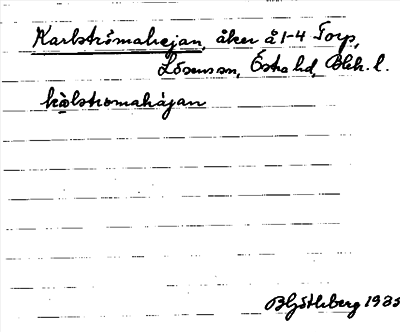 Karlströmahejan, åker å 1-4 Torp,
Lösens sn, Östra hd, Blek. l.
kàlstromahájan
B Hjöstleberg 1935